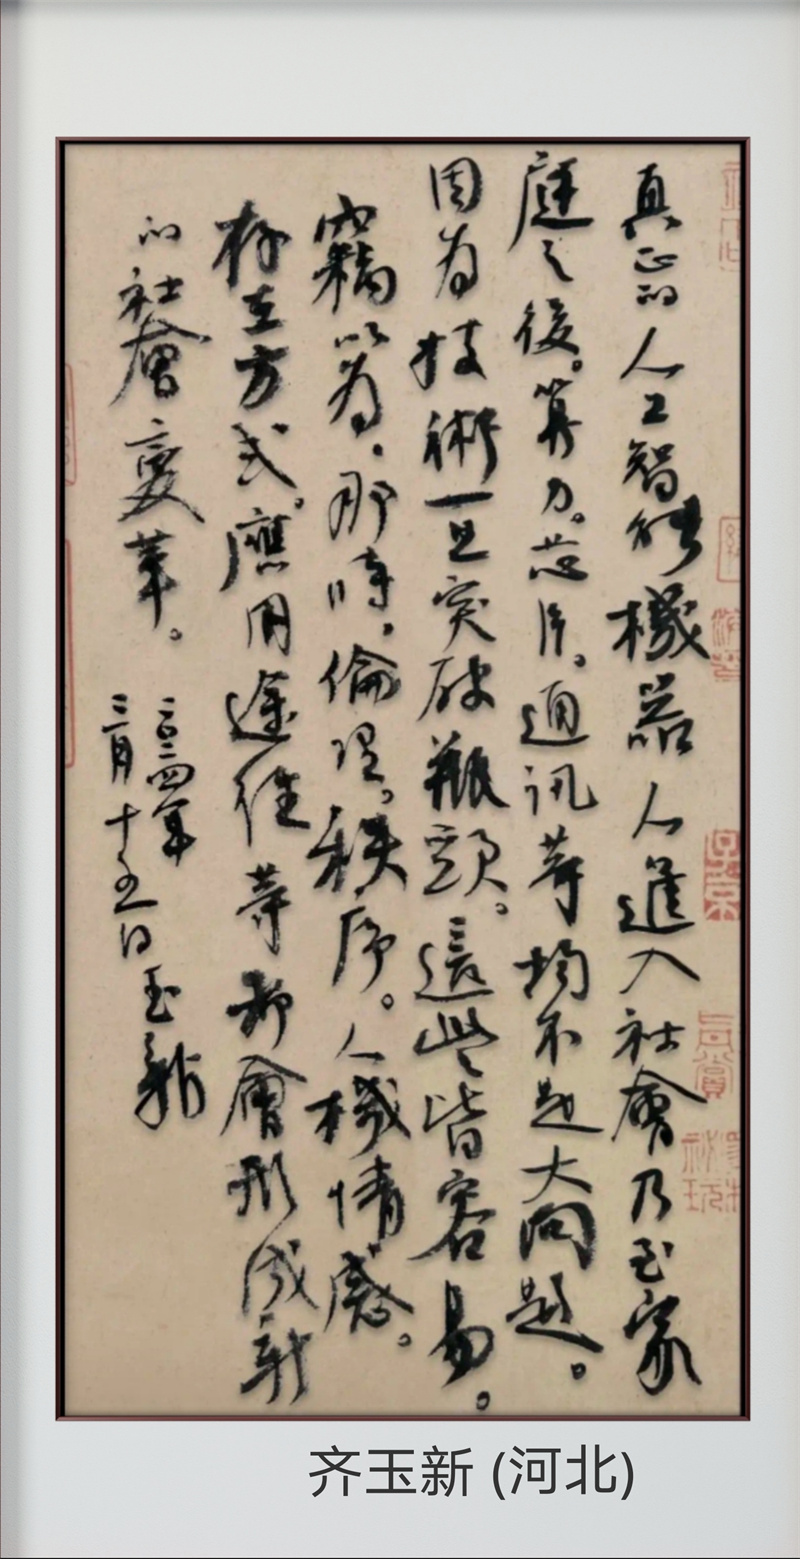 真正的人工智能機器人進入社會乃至家
庭之後。算力。芯片。通訊等均不是大问题。
因为技術一旦突破瓶頸。這些皆容易。
竊以為，那時，倫理。秩序。人機情感。
存在方式。應用途徑等都會形成新
的社會變革。
二〇二四年
三月十五日玉新
齐玉新 (河北)